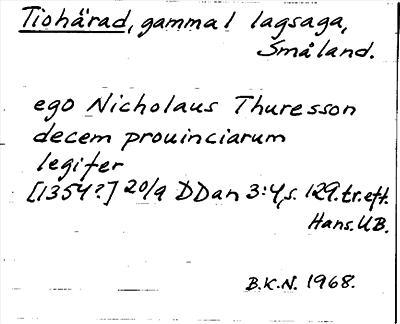 Tiohärad, gammal lagsaga,
Småland.
ego Nicholaus Thuresson
decem prouinciarum
legifer
[1354?] 20/9 DDan 3:4, s. 129. tr. eft.
Hans. UB.
B.K.N. 1968.